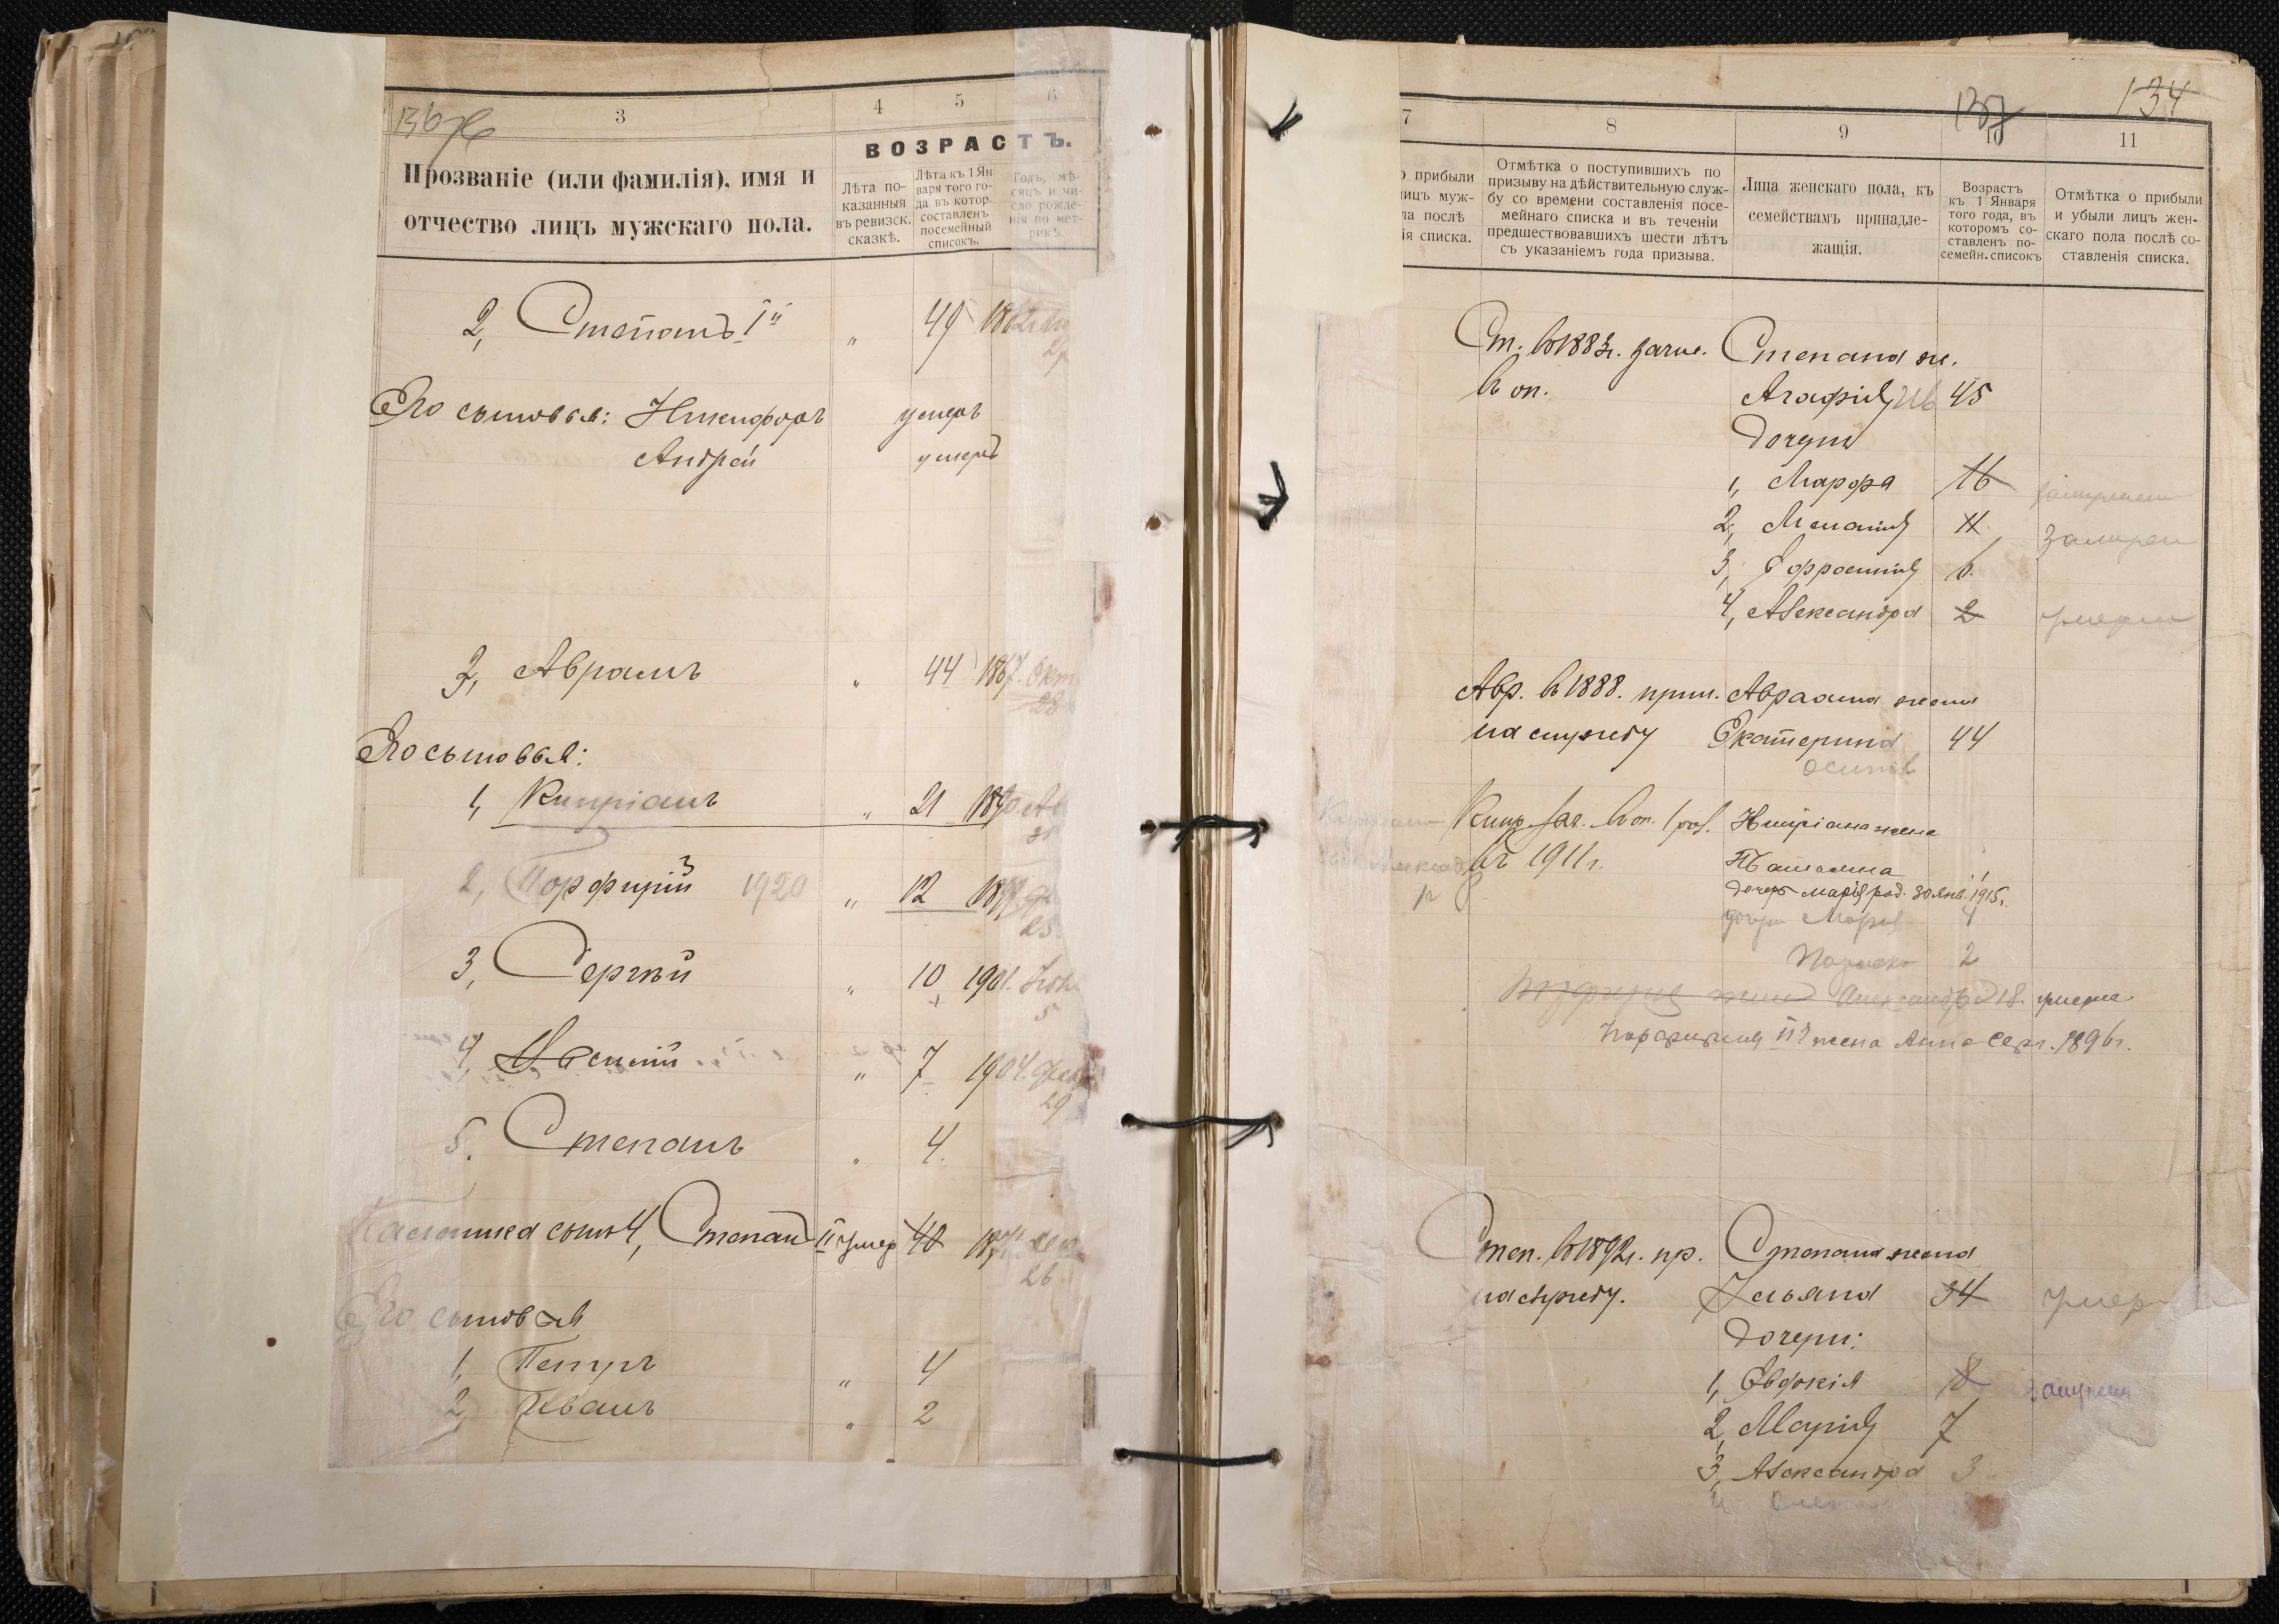 136
3
4
5
6
ВОЗРАСТЪ.
Прозваніе (или фамилія), имя и
отчество лицъ мужскаго пола.
Лѣта по-
казанныя
въ ревизск.
сказкѣ.
Лѣта къ 1 Ян
варя того го-
да въ котор.
составленъ
посемейный
списокъ.
Годъ, мѣ-
сяцъ и чи-
сло рожде-
нія по мет-
рикѣ.
2, Степанъ Iй " 49
Его сыновья: Никифоръ умеръ
Андрей умеръ
3, Аврамъ " 44 1867. Окт
28
Его сыновья:
1, Кипріанъ " 21
2, Порфирій 1920 " 12
25
3, Сергѣй " 10 1901.
5
4, " 7 1904. Фев
29
5. Степанъ " 4.
сынъ 4, Степанъ II умер 40
26
Его сыновья
1, Петръ " 4
2, Иванъ " 2
134
137
7
8
9
10
11
о прибыли
лицъ муж-
ла послѣ
ія списка.
Отмѣтка о поступившихъ по
призыву на дѣйствительную служ-
бу со времени составленія посе-
мейнаго списка и въ теченіи
предшествовавшихъ шести лѣтъ
съ указаніемъ года призыва.
Лица женскаго пола, къ
семействамъ принадле-
жащія.
Возрастъ
къ 1 Января
того года, въ
которомъ со-
ставленъ по-
семейн. списокъ
Отмѣтка о прибыли
и убыли лицъ жен-
скаго пола послѣ со-
ставленія списка.
Ст. въ 1883г. зачис. Степана ж.
въ оп. Агафія Ив 45
Дочери
1, Марфа 16 замужем
2, Меланія 11 замужем
3, Ефросинія 6.
4, Александра 2 умерла
Авр. въ 1888. прин. Авраама жена
на службу Екатерина 44
Осипов
Кипр. зач. въ оп. 1 раз. Кипріана жена
въ 1911г. Татьяна
дочерь Марія род. 30 янв. 1915г.
дочери Мария 4
2
Александра 18. умерла
Порфирия II жена Анна Серг. 1896г.
Степ. въ 1892г. пр. Степана жена
на службу. Ульяна 34 умер
Дочери:
1, Евдокія 8 замужем
2, Марія 7
3, Александра 3